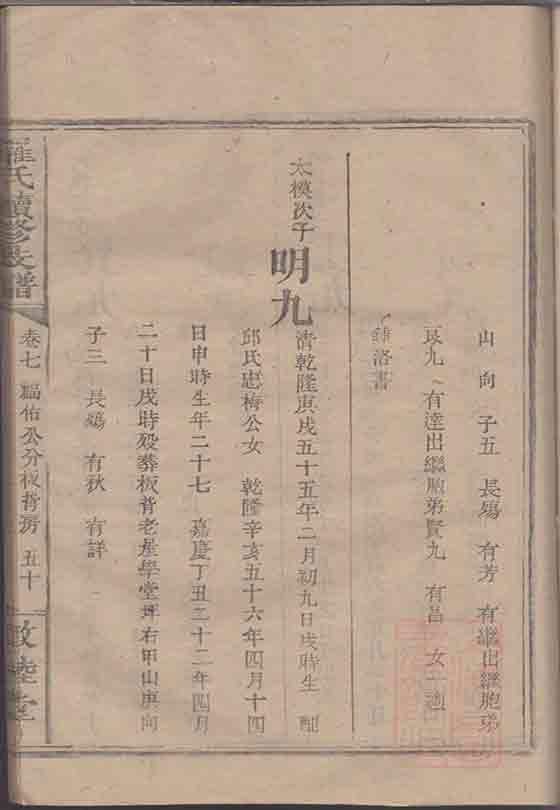 山向 子五 長殤 有芳 有繼出繼胞弟
艮九 有達出繼胞弟賢九 有昌 女一適
洛書
太模次子 明九
清乾隆庚戌五十五年二月初九日戌時生 配
邱氏忠梅公女 乾隆辛亥五十六年四月十四
日申時生年二十七 嘉慶丁丑二十二年四月
二十日戌時歿葬板背老屋學堂坪右甲山庚向
子三 長殤 有秋 有詳
羅氏續修長譜
卷七 福佑公分板背房 五十
敦睦堂